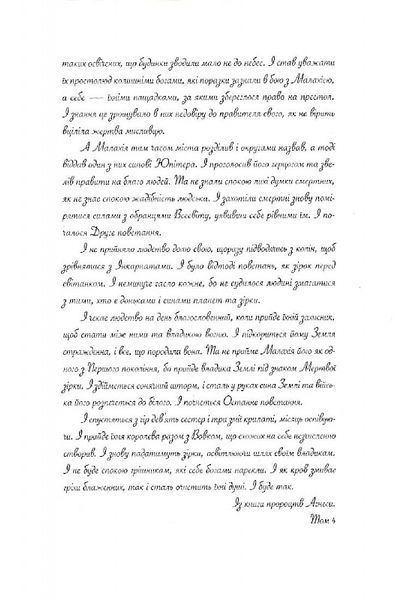 таких освічених, що будинки зводили мало не до небес. І став уважати
їх простолюд колишніми богами, які поразки зазнали в бою з Малахією,
а себе — їхніми нащадками, за якими збереглося право на престол.
І знання це зрощувало в них недовіру до правителя свого, як не вірить
вціліла жертва мисливцю.
А Малахія тим часом міста розділив і округами назвав, а тоді
віддав один з них синові Юпітера. І проголосив його герцогом та зве-
лів правити на благо людей. Та не знали спокою лихі думки смертних,
як не знає спокою жадібність людська. І захотіли смертні знову помі-
рятися силами з обранцями Всесвіту, уявивши себе рівними їм. І по-
чалося Друге повстання.
І не прийняло людство долю свою, щоразу підводячись з колін, щоб
зрівнятися з Інкарнатами. І було відтоді повстань, як зірок перед
світанком. І неминуче гасло кожне, бо не судилося людині змагатися
з тими, хто є доньками і синами планет та зірки.
І чекає людство на день благословенний, коли прийде їхній захисник,
щоб стати між ними та владикою вогню. І підкориться йому Земля
стражденна, і все, що породила вона. Та не прийме Малахія його як одно-
го з Першого покоління, бо прийде владика Землі під знаком Мертвої
зірки. І здійметься сонячний шторм, і сталь у руках сина Землі та війсь-
ка його розпечеться до білого. І почнеться Останнє повстання.
І спустяться з гір дев'ять сестер і три змії крилаті, місяць оспівую-
чи. І прийде їхня королева разом з Вовком, що схожих на себе незліченно
створив. І знову падатимуть зірки, освітлюючи шлях своїм владикам.
І не буде спокою грішникам, які себе богами нарекли. І як кров змиває
гріхи блаженних, так і сталь очистить їхні душі. І буде так.
Із книги пророцтв Агнеси.
Том 4